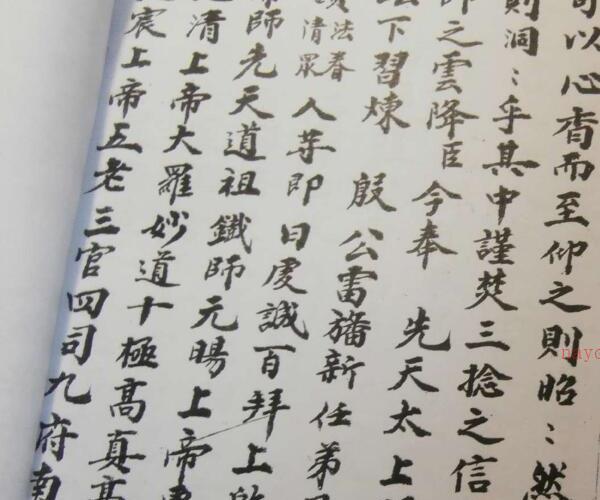 可以心香而至仰之則昭:然
則洞:乎其中謹焚三捻之信
師之雲降臣 今奉 先天太上
下習煉 殷公雷籓新任弟
法春
清眾
人等即日虔誠百拜上啟
師先天道祖鐵師元暘上帝
清上帝大羅妙道十極高真高
宸上帝五老三官四司九府南
nayo